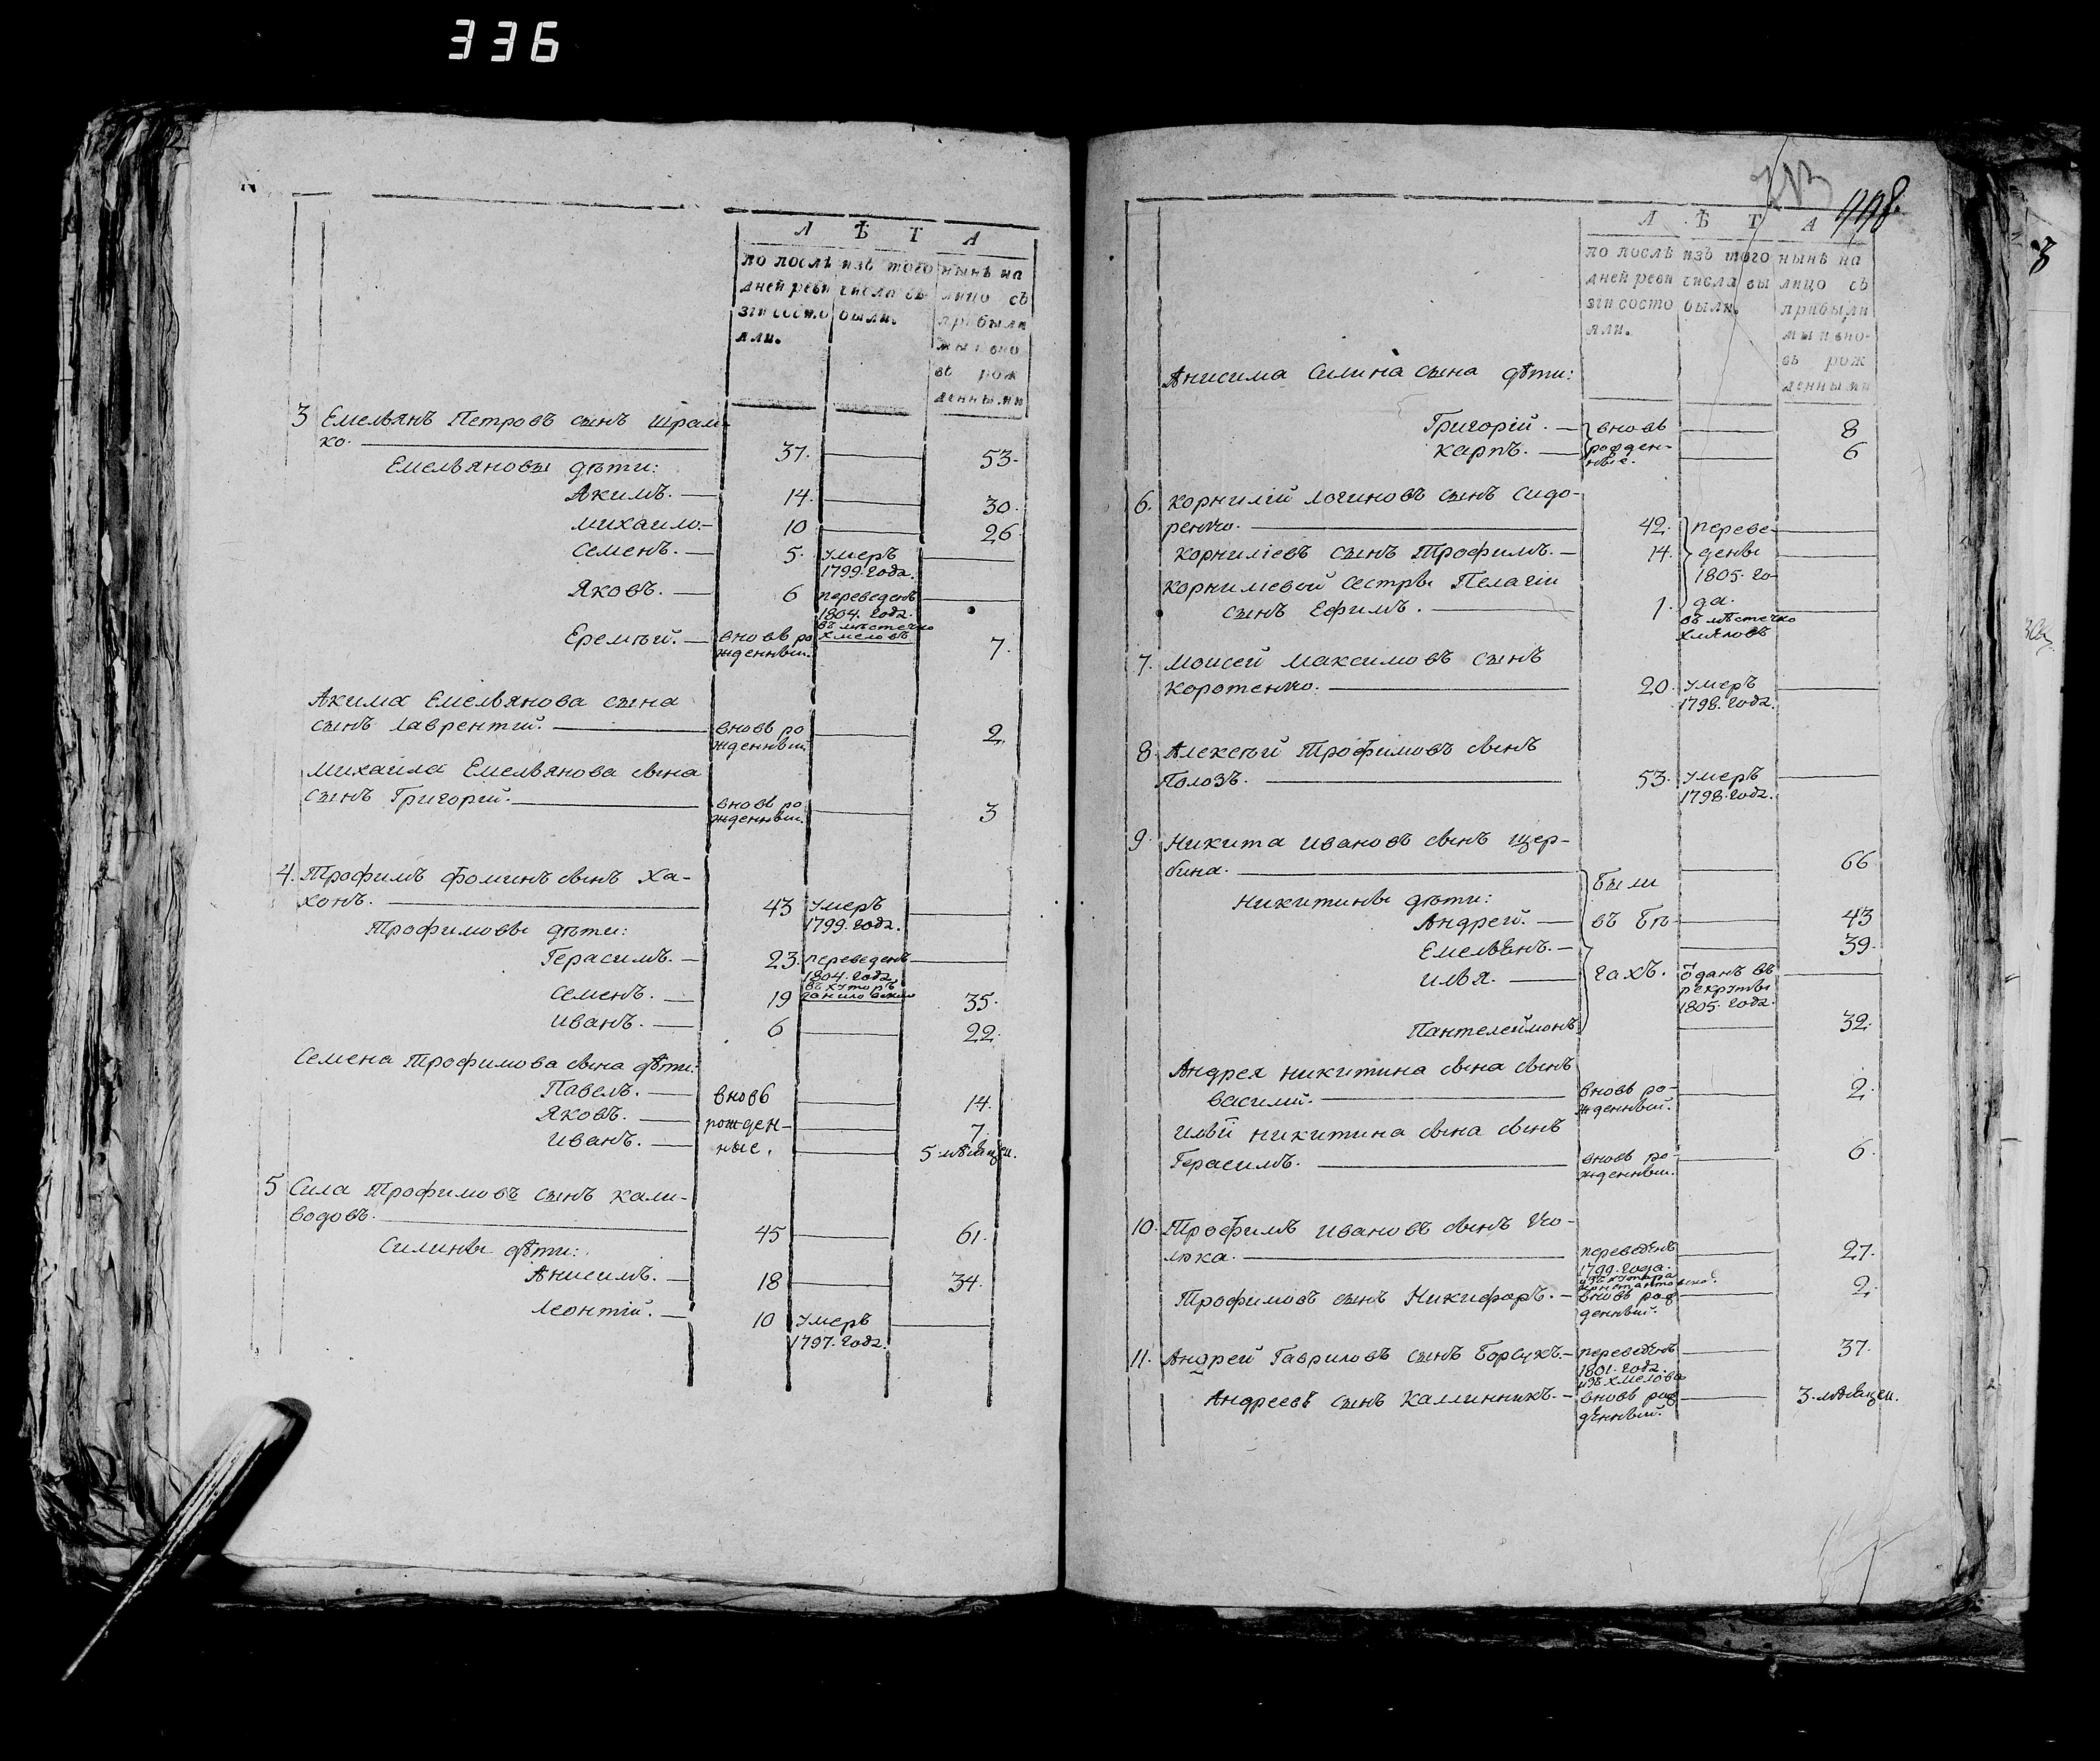 336
Л Ѣ Т А
по послѣ изъ того нынѣ на
дней реви числа вы лицо съ
зіи состо были. прибылы
яли. ми и вно
въ рож
денными
3 Емельянъ Петровъ сынъ Шрам-
ко. 37. 53.
Емельяновы дѣти:
Акимъ. 14. 30.
Михаило. 10 26
Семенъ. 5. умеръ
1799. года.
Яковъ. 6 переведенъ
1804. года.
въ мѣстечко
Хмеловъ
Еремѣй. вновь ро
жденный. 7.
Акима Емельянова сына
сынъ Лаврентій. вновь ро
жденный. 2.
Михаила Емельянова сына
сынъ Григорій. вновь ро
жденный. 3
4. Трофимъ Фоминъ сынъ Ха-
хонъ. 43 умеръ
1799. года.
Трофимовы дѣти:
Герасимъ. 23. переведенъ
1804. года.
въ хуторъ
Семенъ. 19 35.
Иванъ. 6 22.
Семена Трофимова сына дѣти:
Павелъ. вновь 14.
Яковъ. рожден- 7.
Иванъ. ные. 5 мѣсяцеи.
5 Сила Трофимовъ сынъ Кали-
водовъ. 45 61.
Силины дѣти:
Анисимъ. 18 34.
Леонтій. 10 умеръ
1797. года.
498.
3
Л Ѣ Т А
по послѣ изъ того нынѣ на
дней реви числа вы лицо съ
зіи состо были. прибыли
яли. ми и вно-
въ рож
денными
Анисима Силина сына дѣти:
Григорій. вновь 8
Карпъ. рожден- 6
ные.
6. Корнилій Логиновъ сынъ Сидо-
ренко. 42. переве-
Корниліевъ сынъ Трофимъ. 14. дены
1805. го-
Корнилиевой сестры Пелагіи
сынъ Ефимъ. 1. да.
въ мѣстечко
Хмѣловъ
7. Моисей Максимовъ сынъ
Коротенко. 20. умеръ
1798. года.
8. Алексѣй Трофимовъ сынъ
Полозъ. 53. умеръ
1798. года.
9. Никита Ивановъ сынъ Щер-
бина. были 66
Никитины дѣти:
Андрей. въ бѣ- 43
Емельянъ. 39.
Илья. гахъ. ѿданъ въ
рекруты
1805. года.
Пантелеймонъ 32.
Андрея Никитина сына сынъ
Василий. вновь ро-
жденный. 2.
Ильи Никитина сына сынъ
Герасимъ. вновь ро-
жденный. 6.
10. Трофимъ Ивановъ сынъ
переведенъ 27.
1799. года.
изъ хутора
Трофимовъ сынъ Никифоръ. вновь рож
денный. 2.
11. Андрей Гавриловъ сынъ Борсукъ. переведенъ 37.
1801. года.
изъ Хмелова
Андреевъ сынъ Каллинникъ. вновь рож
денный. 3. мѣсяцеи.